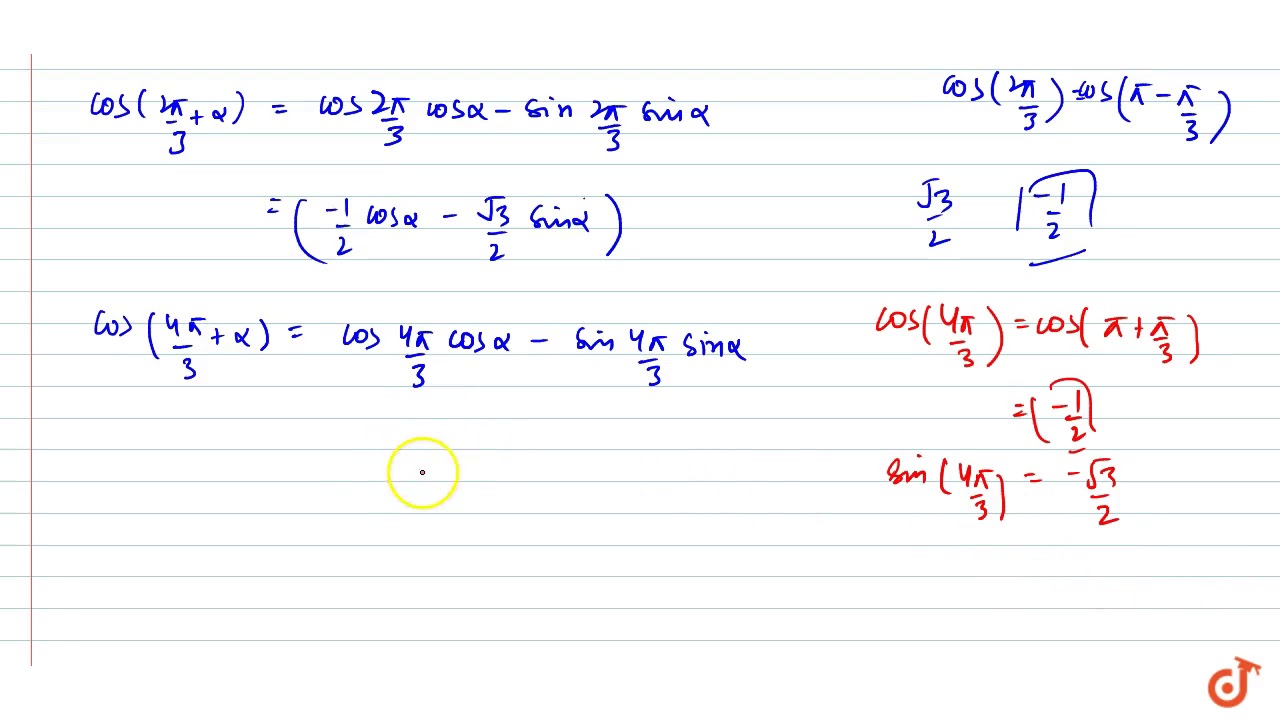 cos(2π/3 + α) = cos 2π/3 cosα − sin 2π/3 sinα
= (-1/2 cosα − √3/2 sinα)
cos(4π/3 + α) = cos 4π/3 cosα − sin 4π/3 sinα
cos(2π/3) = cos(π − π/3)
√3/2 -1/2
cos(4π/3) = cos(π + π/3)
= (-1/2)
sin(4π/3) = -√3/2